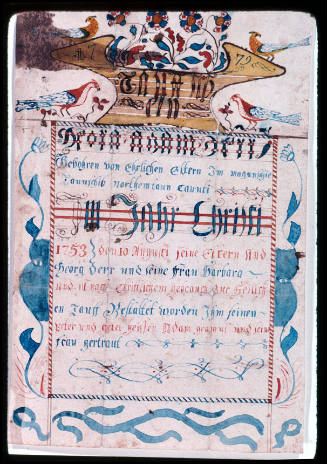 17 79
Tauff sch
ein
Georg adam Derr
Gebohren von Ehelichen Eltern Im
Taunschip Northemtaun Caunti
Im Jahr Christi
1753 den 10 Augusti seine Eltern sind
Georg Derr und seine frau barbara
und ist nach Christlichem gebrauch zur
en Tauff Bestaltet worden Ihm seinen
und sein
frau gertraut